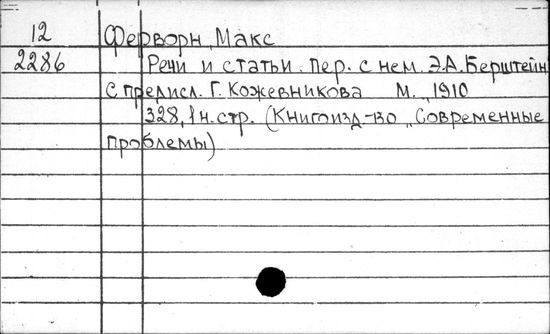 12 Ферворн, Макс
2286 Речи и статьи. пер. с нем. Э.А. Берштейн
с предисл. Г. Кожевникова М., 1910
328, 1 н. стр. (Книгоизд-во „Современные
проблемы)